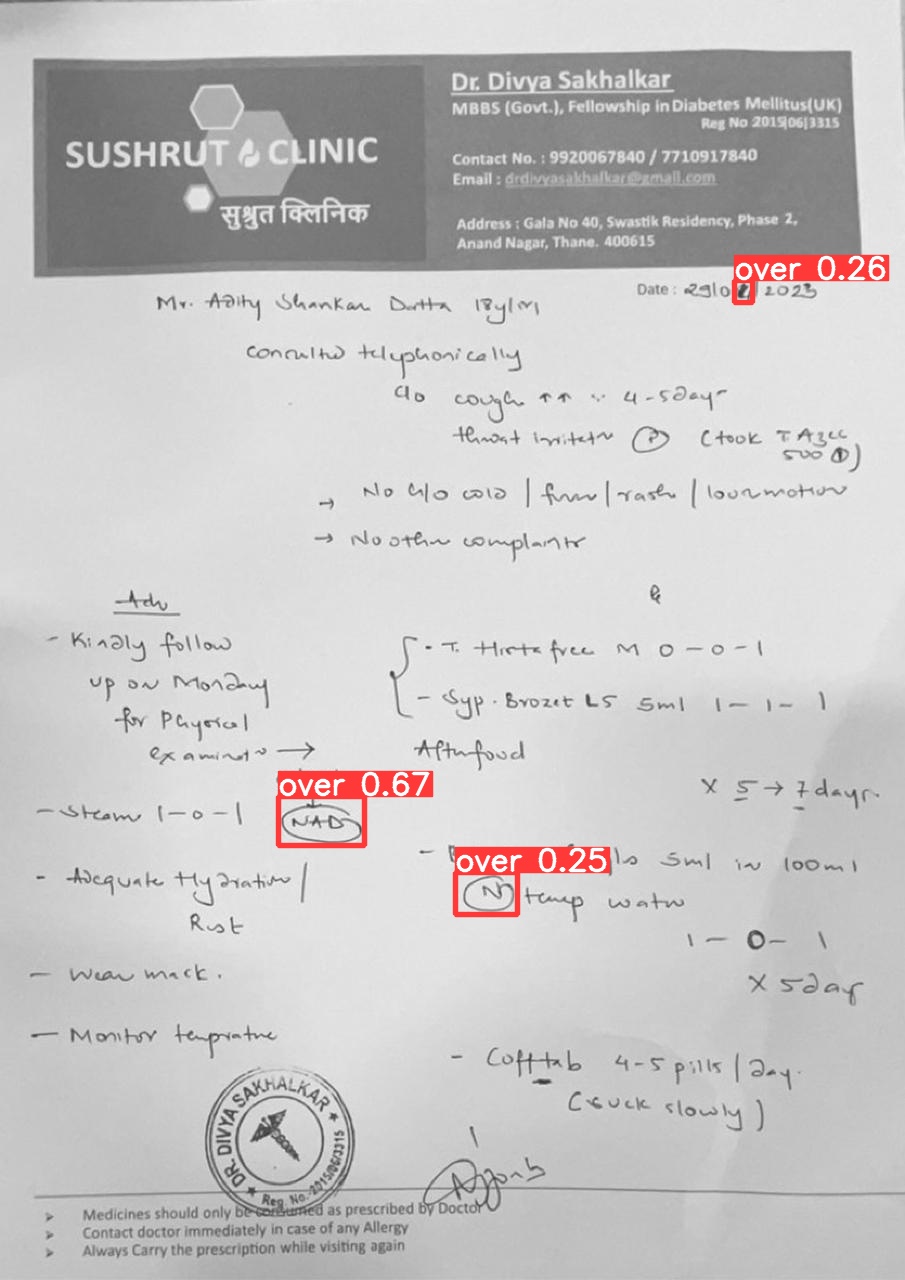 SUSHRUT CLINIC
सुश्रुत क्लिनिक
Dr. Divya Sakhalkar
MBBS (Govt.), Fellowship in Diabetes Mellitus(UK)
Reg No 2015|06|3315
Contact No. : 9920067840 / 7710917840
Email : drdivyasakhalkar@gmail.com
Address : Gala No 40, Swastik Residency, Phase 2,
Anand Nagar, Thane. 400615
over 0.26
Date : 29/0 /2023
Mr. Adity Shankar Dutta 18y/M
Consulted telephonically
c/o cough ↑↑ 4-5 days
throat irritatn (took T Azee
500 ①)
→ No h/o cold / fever / rash / loosemotion
→ No other complaints
Adv
- Kindly follow
up on Monday
for Physical
examinatn →
over 0.67
NAD
- Steam 1-0-1
- Adequate Hydration /
Rest
- Wear mask.
- Monitor temprature
- T. Histafree M 0-0-1
- Syp. Brozet LS 5ml 1-1-1
After food
X 5 → 7 days.
over 0.25
5ml in 100ml
N temp water
1 - 0 - 1
X 5 day
- Cofftab 4-5 pills / day.
(suck slowly)
DR. DIVYA SAKHALKAR
Reg. No.-2015/06/3315
➤ Medicines should only be consumed as prescribed by Doctor
➤ Contact doctor immediately in case of any Allergy
➤ Always Carry the prescription while visiting again